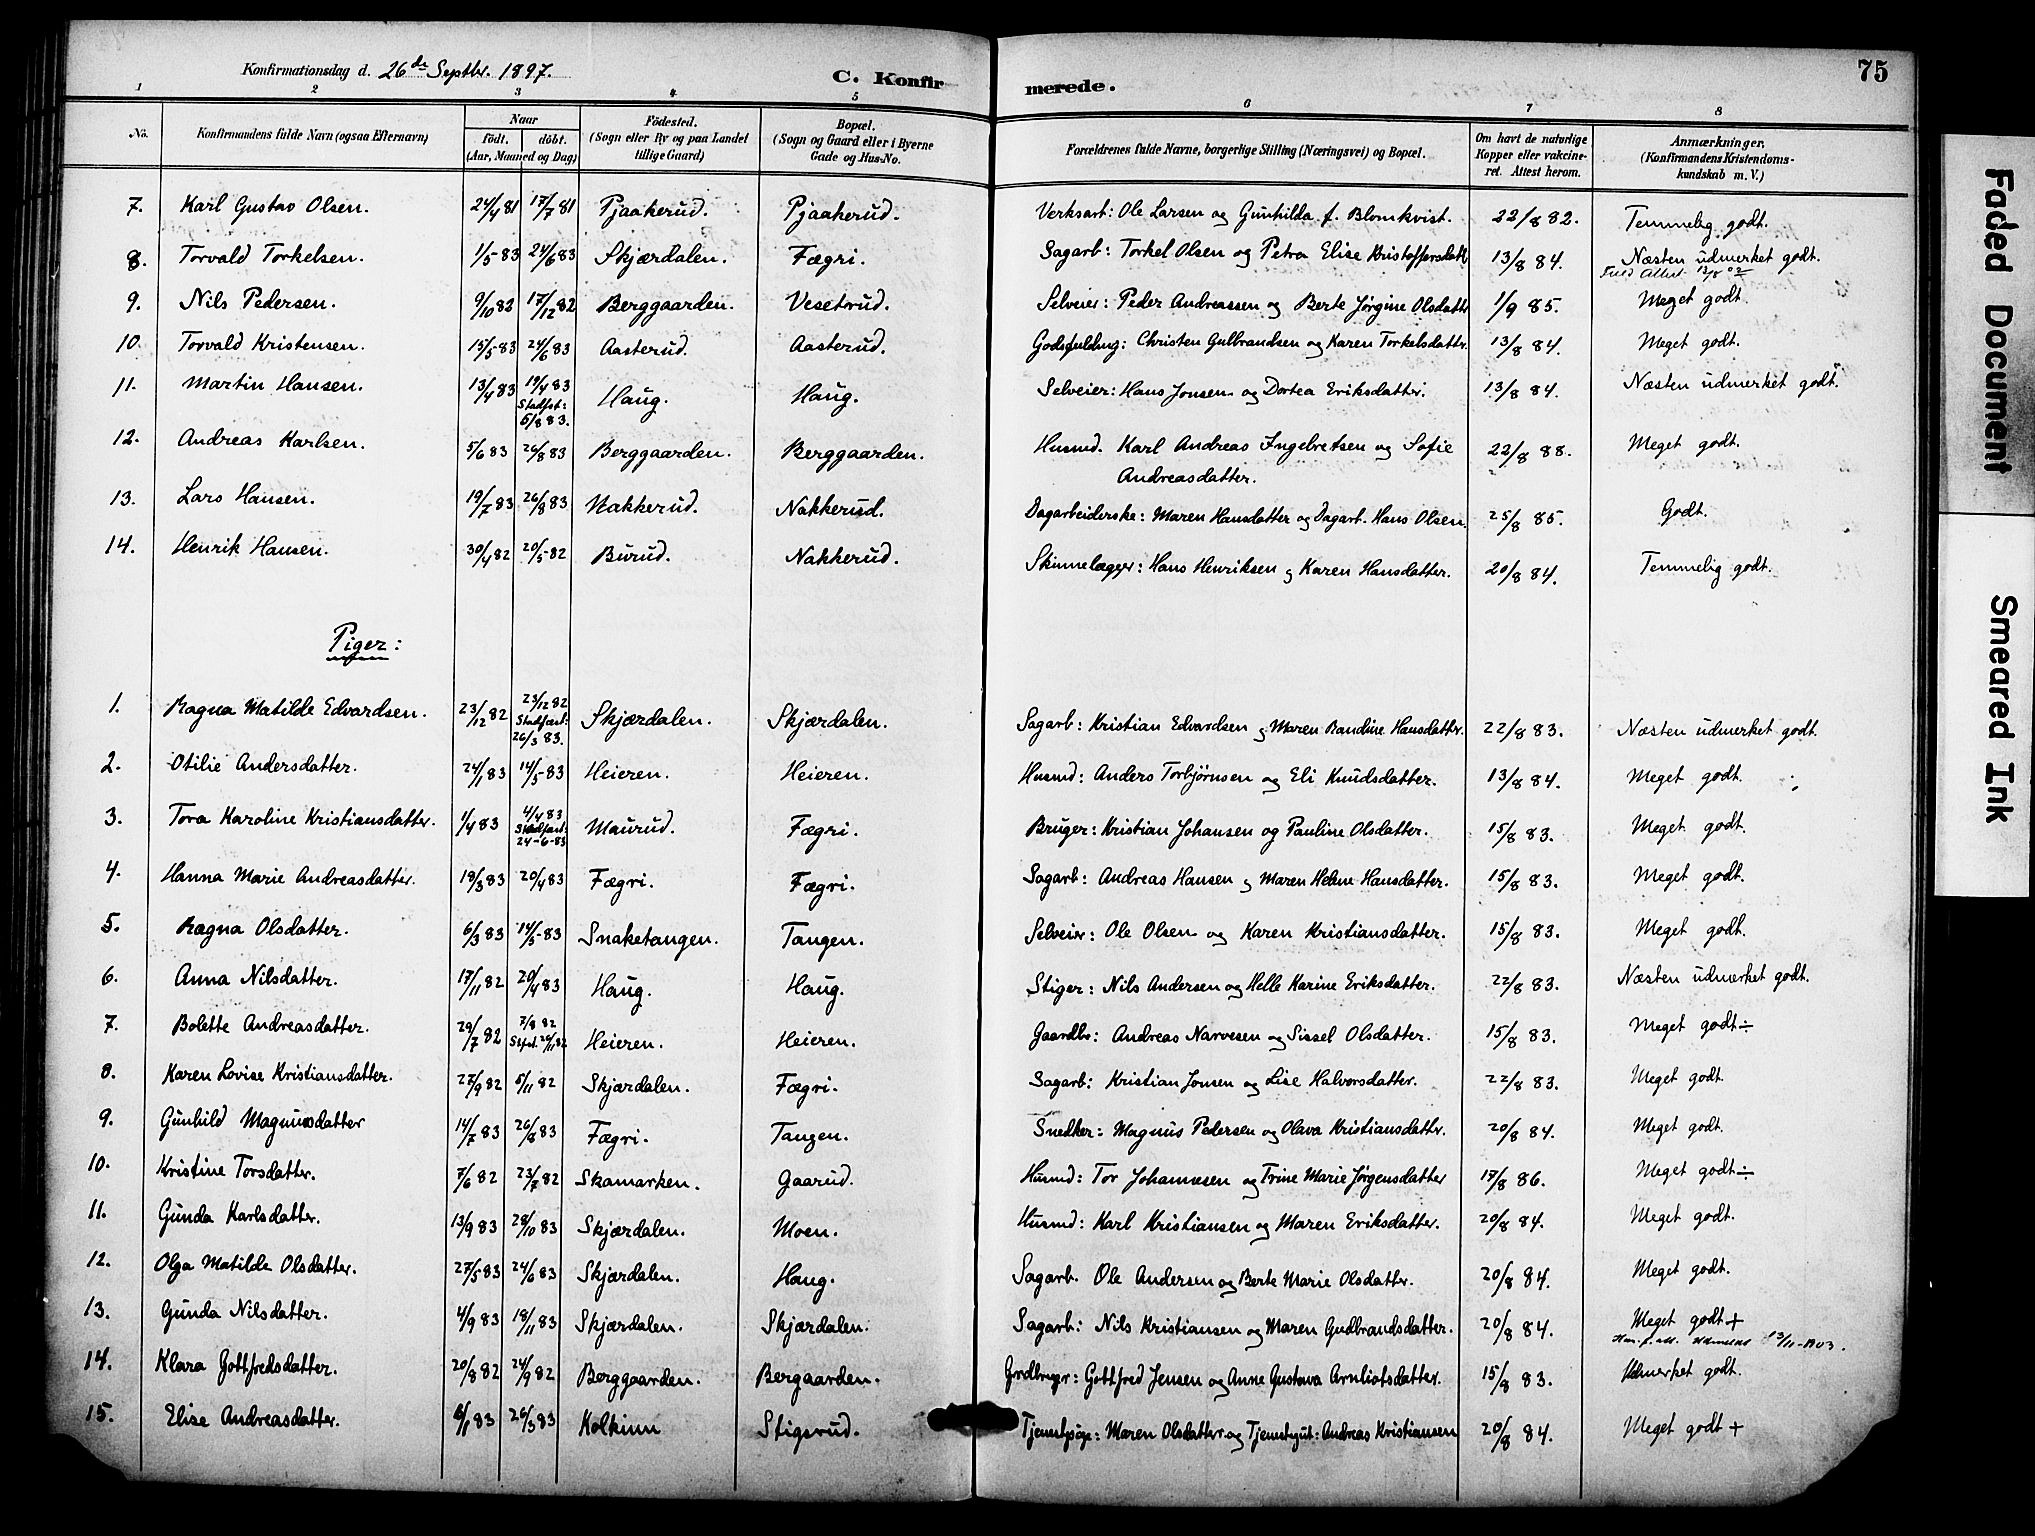 Konfirmationsdag d. 26de Septbr. 1897. C. Konfirmerede. 75
1 2 3 4 5 6 7 8
No. Konfirmandens fulde Navn (ogsaa Efternavn) Naar født. døbt. (Aar, Maaned og Dag) Fødested. (Sogn eller By og paa Landet tillige Gaard) Bopæl. (Sogn og Gaard eller i Byerne Gade og Hus-No. Forældrenes fulde Navne, borgerlige Stilling (Næringsvei) og Bopæl. Om havt de naturlige Kopper eller vakcineret. Attest herom. Anmærkninger. (Konfirmandens Kristendomskundskab m. V.)
7. Karl Gustav Olsen. 24/4 81 17/7 81 Pjaakerud. Pjaakerud. Verksarb: Ole Larsen og Gunhilda f. Blomkvist. 22/8 82. Temmelig godt.
8. Torvald Torkelsen. 1/5 83 24/6 83 Skjærdalen. Fægri. Sagarb: Torkel Olsen og Petra Elise Kristoffersdatt 13/8 84. Næsten udmerket godt.
9. Nils Pedersen. 9/10 82 17/12 82 Berggaarden. Vesetrud. Selveier: Peder Andreassen og Berte Jørgine Olsdatter 1/9 85. Meget godt.
10. Torvald Kristensen. 15/5 83 24/6 83 Aasterud. Aasterud. Godsfuldmg: Christen Gulbrandsen og Karen Torkelsdatter. 13/8 84. Meget godt.
11. Martin Hansen. 13/4 83 19/4 83 Stadfæst: 5/8 83. Haug. Haug. Selveier: Hans Jonsen og Dortea Eriksdatter. 13/8 84. Næsten udmerket godt.
12. Andreas Karlsen. 5/6 83 26/8 83 Berggaarden. Berggaarden. Husmd. Karl Andreas Ingebretsen og Sofie Andreasdatter. 22/8 88. Meget godt.
13. Lars Hansen. 19/7 83 26/8 83 Nakkerud. Nakkerud. Dagarbeiderske: Maren Hansdatter og Dagarb. Hans Olsen. 25/8 85. Godt.
14. Henrik Hansen. 30/4 82 20/5 82 Burud. Nakkerud. Skinnelægger: Hans Henriksen og Karen Hansdatter. 20/8 84. Temmelig godt.
Piger:
1. Ragna Matilde Edvardsen. 23/12 82 23/12 82 Stadfæst: 26/3 83. Skjærdalen. Skjærdalen. Sagarb: Kristian Edvardsen og Maren Randine Hansdatter. 22/8 83. Næsten udmerket godt.
2. Otilie Andersdatter. 24/1 83 14/5 83 Heieren. Heieren. Husmd: Anders Torbjørnsen og Eli Knudsdatter. 13/8 84. Meget godt.
3. Tora Karoline Kristiansdatter. 1/4 83 4/4 83 Stadfæst: 24-6-83 Maurud. Fægri. Bruger: Kristian Johansen og Pauline Olsdatter. 15/8 83. Meget godt.
4. Hanna Marie Andreasdatter. 19/3 83 20/4 83 Fægri. Fægri. Sagarb: Andreas Hansen og Maren Helene Hansdatter. 15/8 83. Meget godt.
5. Ragna Olsdatter. 6/3 83 14/5 83 Snaketangen. Tangen. Selveier: Ole Olsen og Karen Kristiansdatter. 15/8 83. Meget godt.
6. Anna Nilsdatter. 17/11 82 20/4 83 Haug. Haug. Stiger: Nils Andersen og Helle Karine Eriksdatter. 22/8 83. Næsten udmerket godt.
7. Bolette Andreasdatter. 29/7 82 7/8 82 Stfst. 26/11 82 Heieren. Heieren. Gaardbr: Andreas Narvesen og Sissel Olsdatter. 15/8 83. Meget godt ÷
8. Karen Lovise Kristiansdatter. 27/9 82 5/11 82 Skjærdalen. Fægri. Sagarb: Kristian Jonsen og Lise Halvorsdatter. 22/8 83. Meget godt.
9. Gunhild Magnusdatter 14/7 83 26/8 83 Fægri. Tangen. Snedker: Magnus Pedersen og Olava Kristiansdatter. 20/8 84. Meget godt.
10. Kristine Torsdatter. 7/6 82 23/7 82 Skamarken. Gaarud. Husmd: Tor Johannesen og Trine Marie Jørgensdatter 17/8 86. Meget godt ÷
11. Gunda Karlsdatter. 13/9 83 28/10 83 Skjærdalen. Moen. Husmd: Karl Kristiansen og Maren Eriksdatter. 20/8 84. Meget godt.
12. Olga Matilde Olsdatter. 27/5 83 24/6 83 Skjærdalen. Haug. Sagarb. Ole Andersen og Berte Marie Olsdatter. 20/8 84. Meget godt.
13. Gunda Nilsdatter. 4/9 83 18/11 83 Skjærdalen. Skjærdalen. Sagarb: Nils Kristiansen og Maren Gudbrandsdatter. 20/8 84. Meget godt + 13/11-1903.
14. Klara Gottfredsdatter. 20/8 82 24/9 82 Berggaarden. Bergaarden. Grdbruger: Gottfred Jensen og Anne Gustava Arnliotsdatter. 15/8 83. Udmerket godt.
15. Elise Andreasdatter. 6/1 83 26/3 83 Kolkinn Stigsrud. Tjenestepige: Maren Olsdatter og Tjenestegut: Andreas Kristiansen 20/8 84. Meget godt +
Faded Document
Smeared Ink